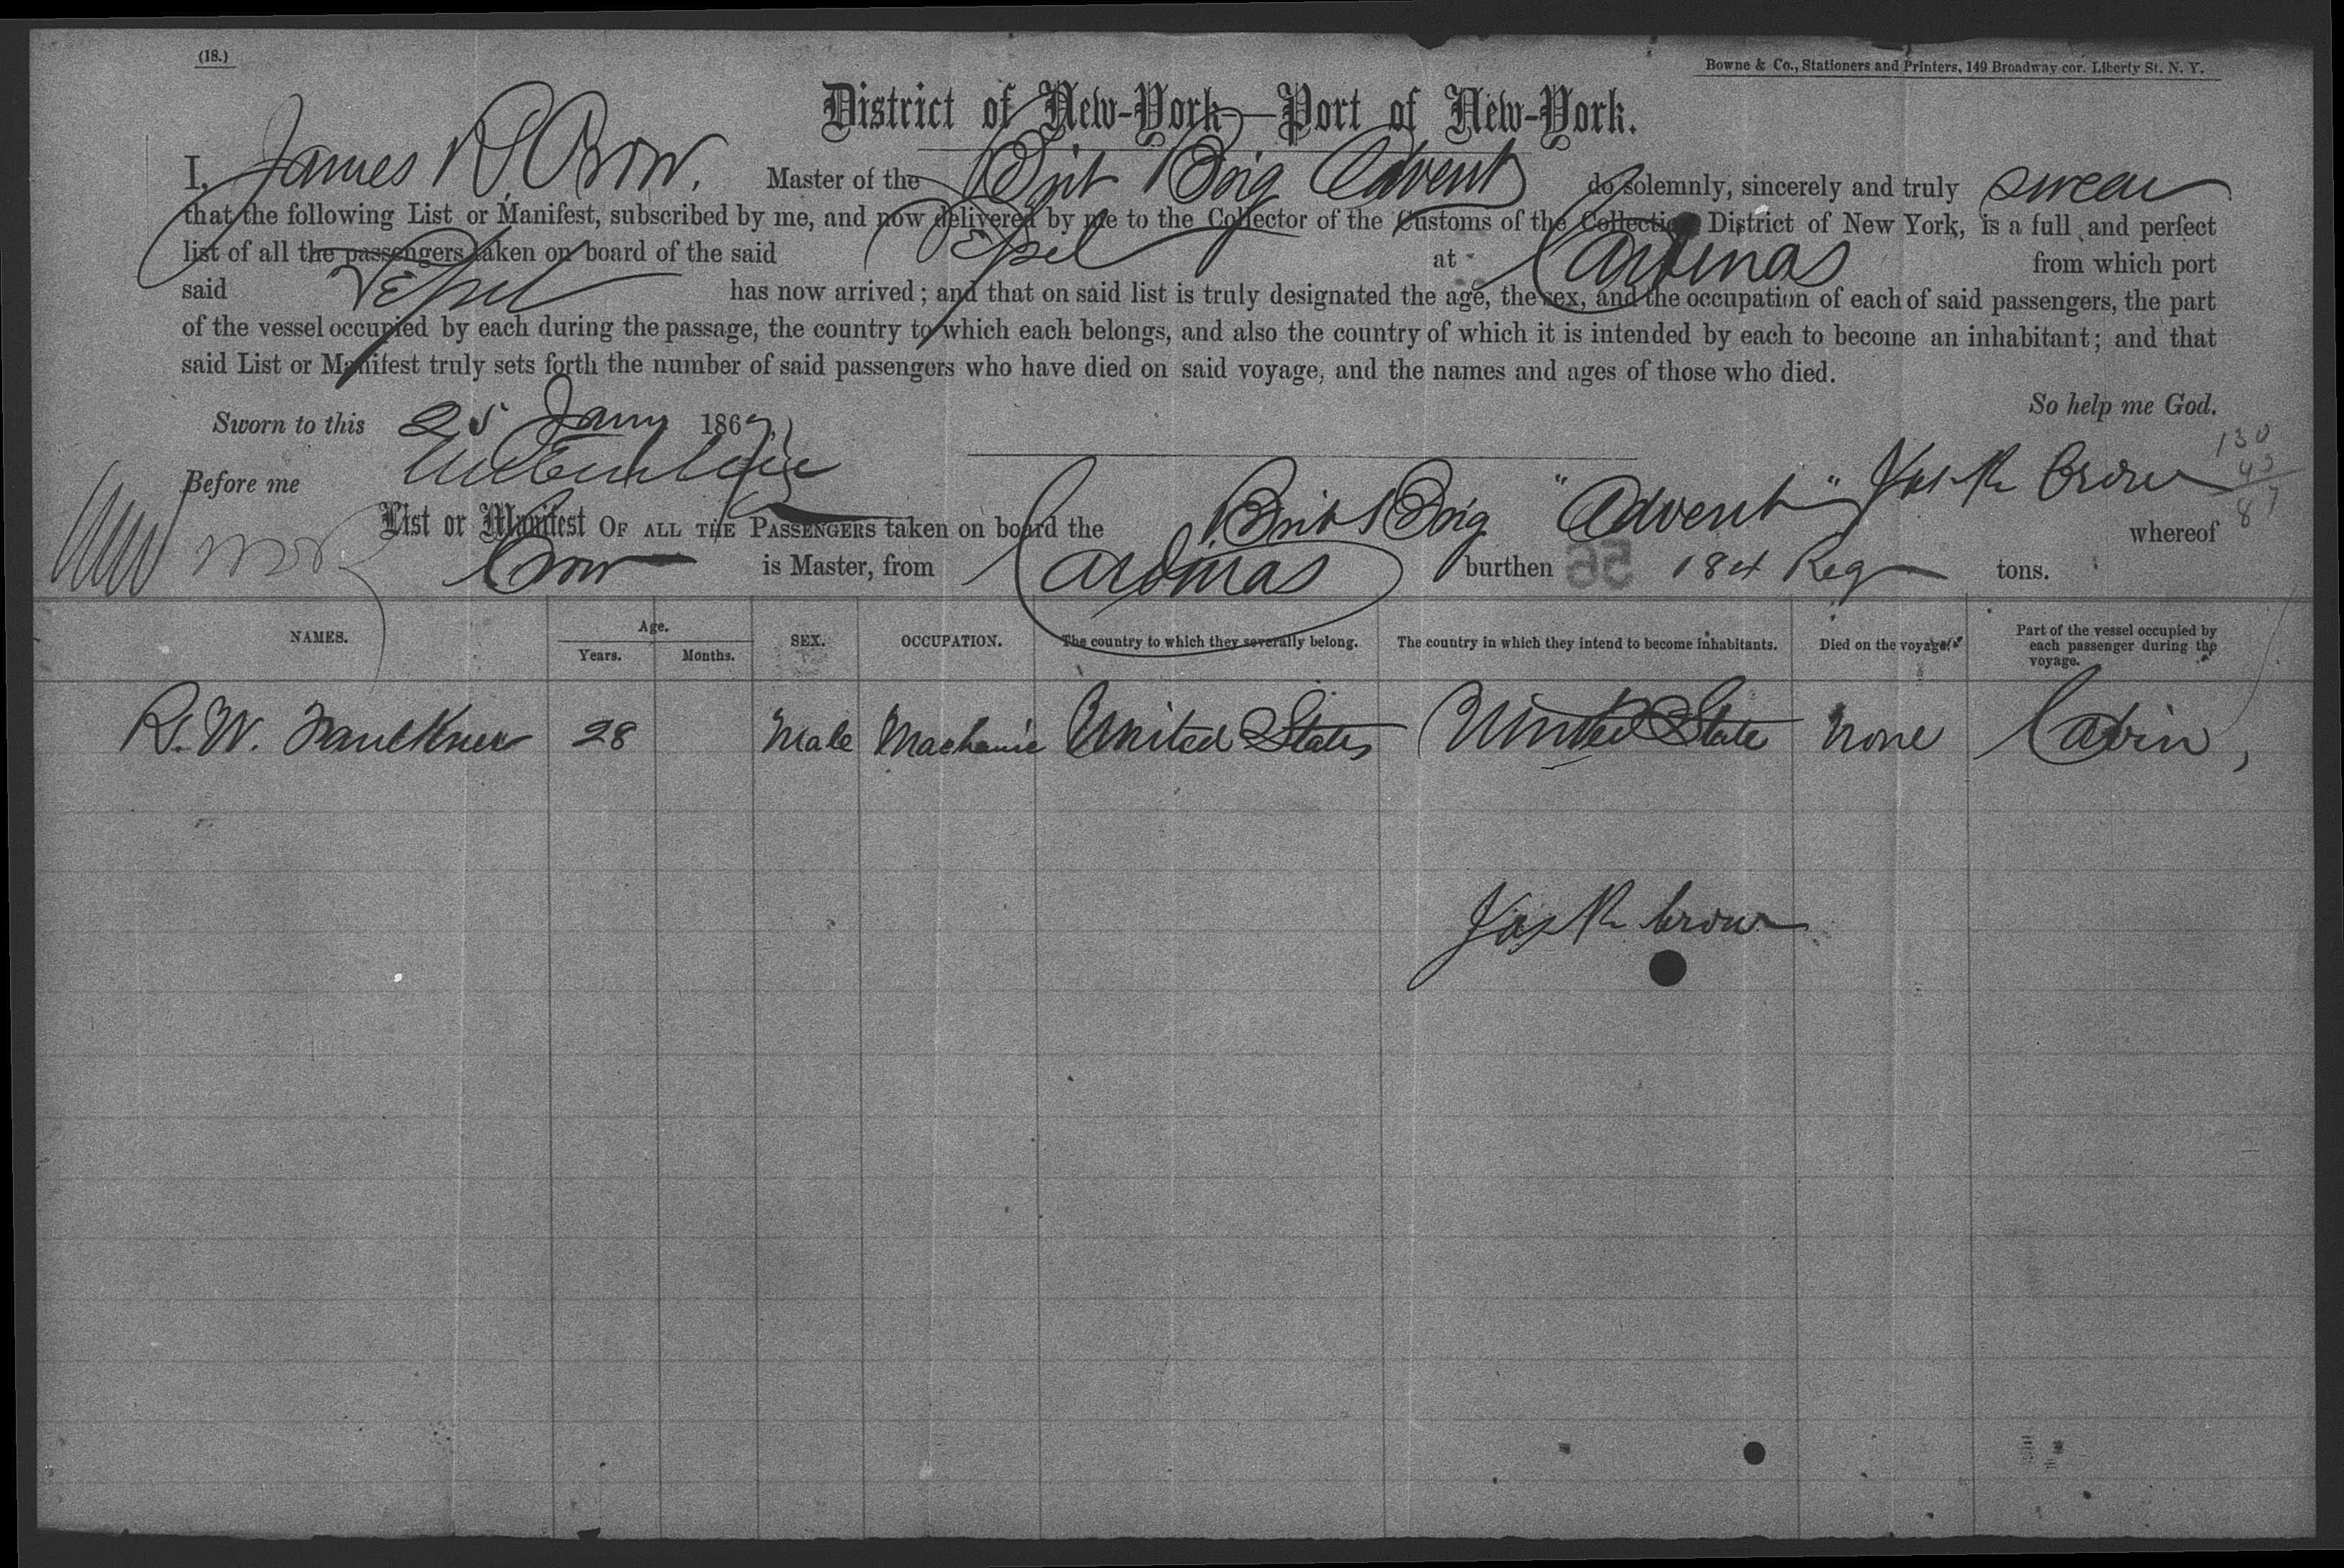 (18.)
Bowne & Co., Stationers and Printers, 149 Broadway cor. Liberty St. N. Y.
District of New-York—Port of New-York.
I, James R Crow. Master of the Brit Brig Advent do solemnly, sincerely and truly swear
that the following List or Manifest, subscribed by me, and now delivered by me to the Collector of the Customs of the Collection District of New York, is a full and perfect
list of all the passengers taken on board of the said Vessel at Cardenas from which port
said Vessel has now arrived; and that on said list is truly designated the age, the sex, and the occupation of each of said passengers, the part
of the vessel occupied by each during the passage, the country to which each belongs, and also the country of which it is intended by each to become an inhabitant; and that
said List or Manifest truly sets forth the number of said passengers who have died on said voyage, and the names and ages of those who died.
So help me God.
Sworn to this 25 Jany 1867
Before me
Jas R Crow
130
43
87
List or Manifest OF ALL THE PASSENGERS taken on board the Brit Brig "Advent" whereof
Crow is Master, from Cardenas burthen 184 Reg tons.
56
NAMES. Age. Years. Months. SEX. OCCUPATION. The country to which they severally belong. The country in which they intend to become inhabitants. Died on the voyage. Part of the vessel occupied by each passenger during the voyage.
R. W. Faulkner 28 Male Machanic United States United States None Cabin,
Jas R Crow